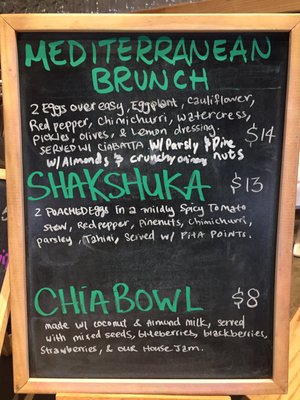 MEDITERRANEAN
BRUNCH
2 Eggs over easy, Eggplant, Cauliflower,
Red pepper, Chimichurri, watercress,
Pickles, olives, & Lemon dressing.
SERVED W/ CIABATTA W/ Parsly & Pine
$14
W/ Almonds & crunchy onions nuts
SHAKSHUKA $13
2 POACHED Eggs in a mildly Spicy Tomato
Stew, Red pepper, Pinenuts, Chimichurri,
parsley, Tahini, Served W/ PITA POINTS.
CHIA BOWL $8
made w/ coconut & Almond milk, served
with mixed seeds, blueberries, blackberries,
Strawberries, & our House Jam.